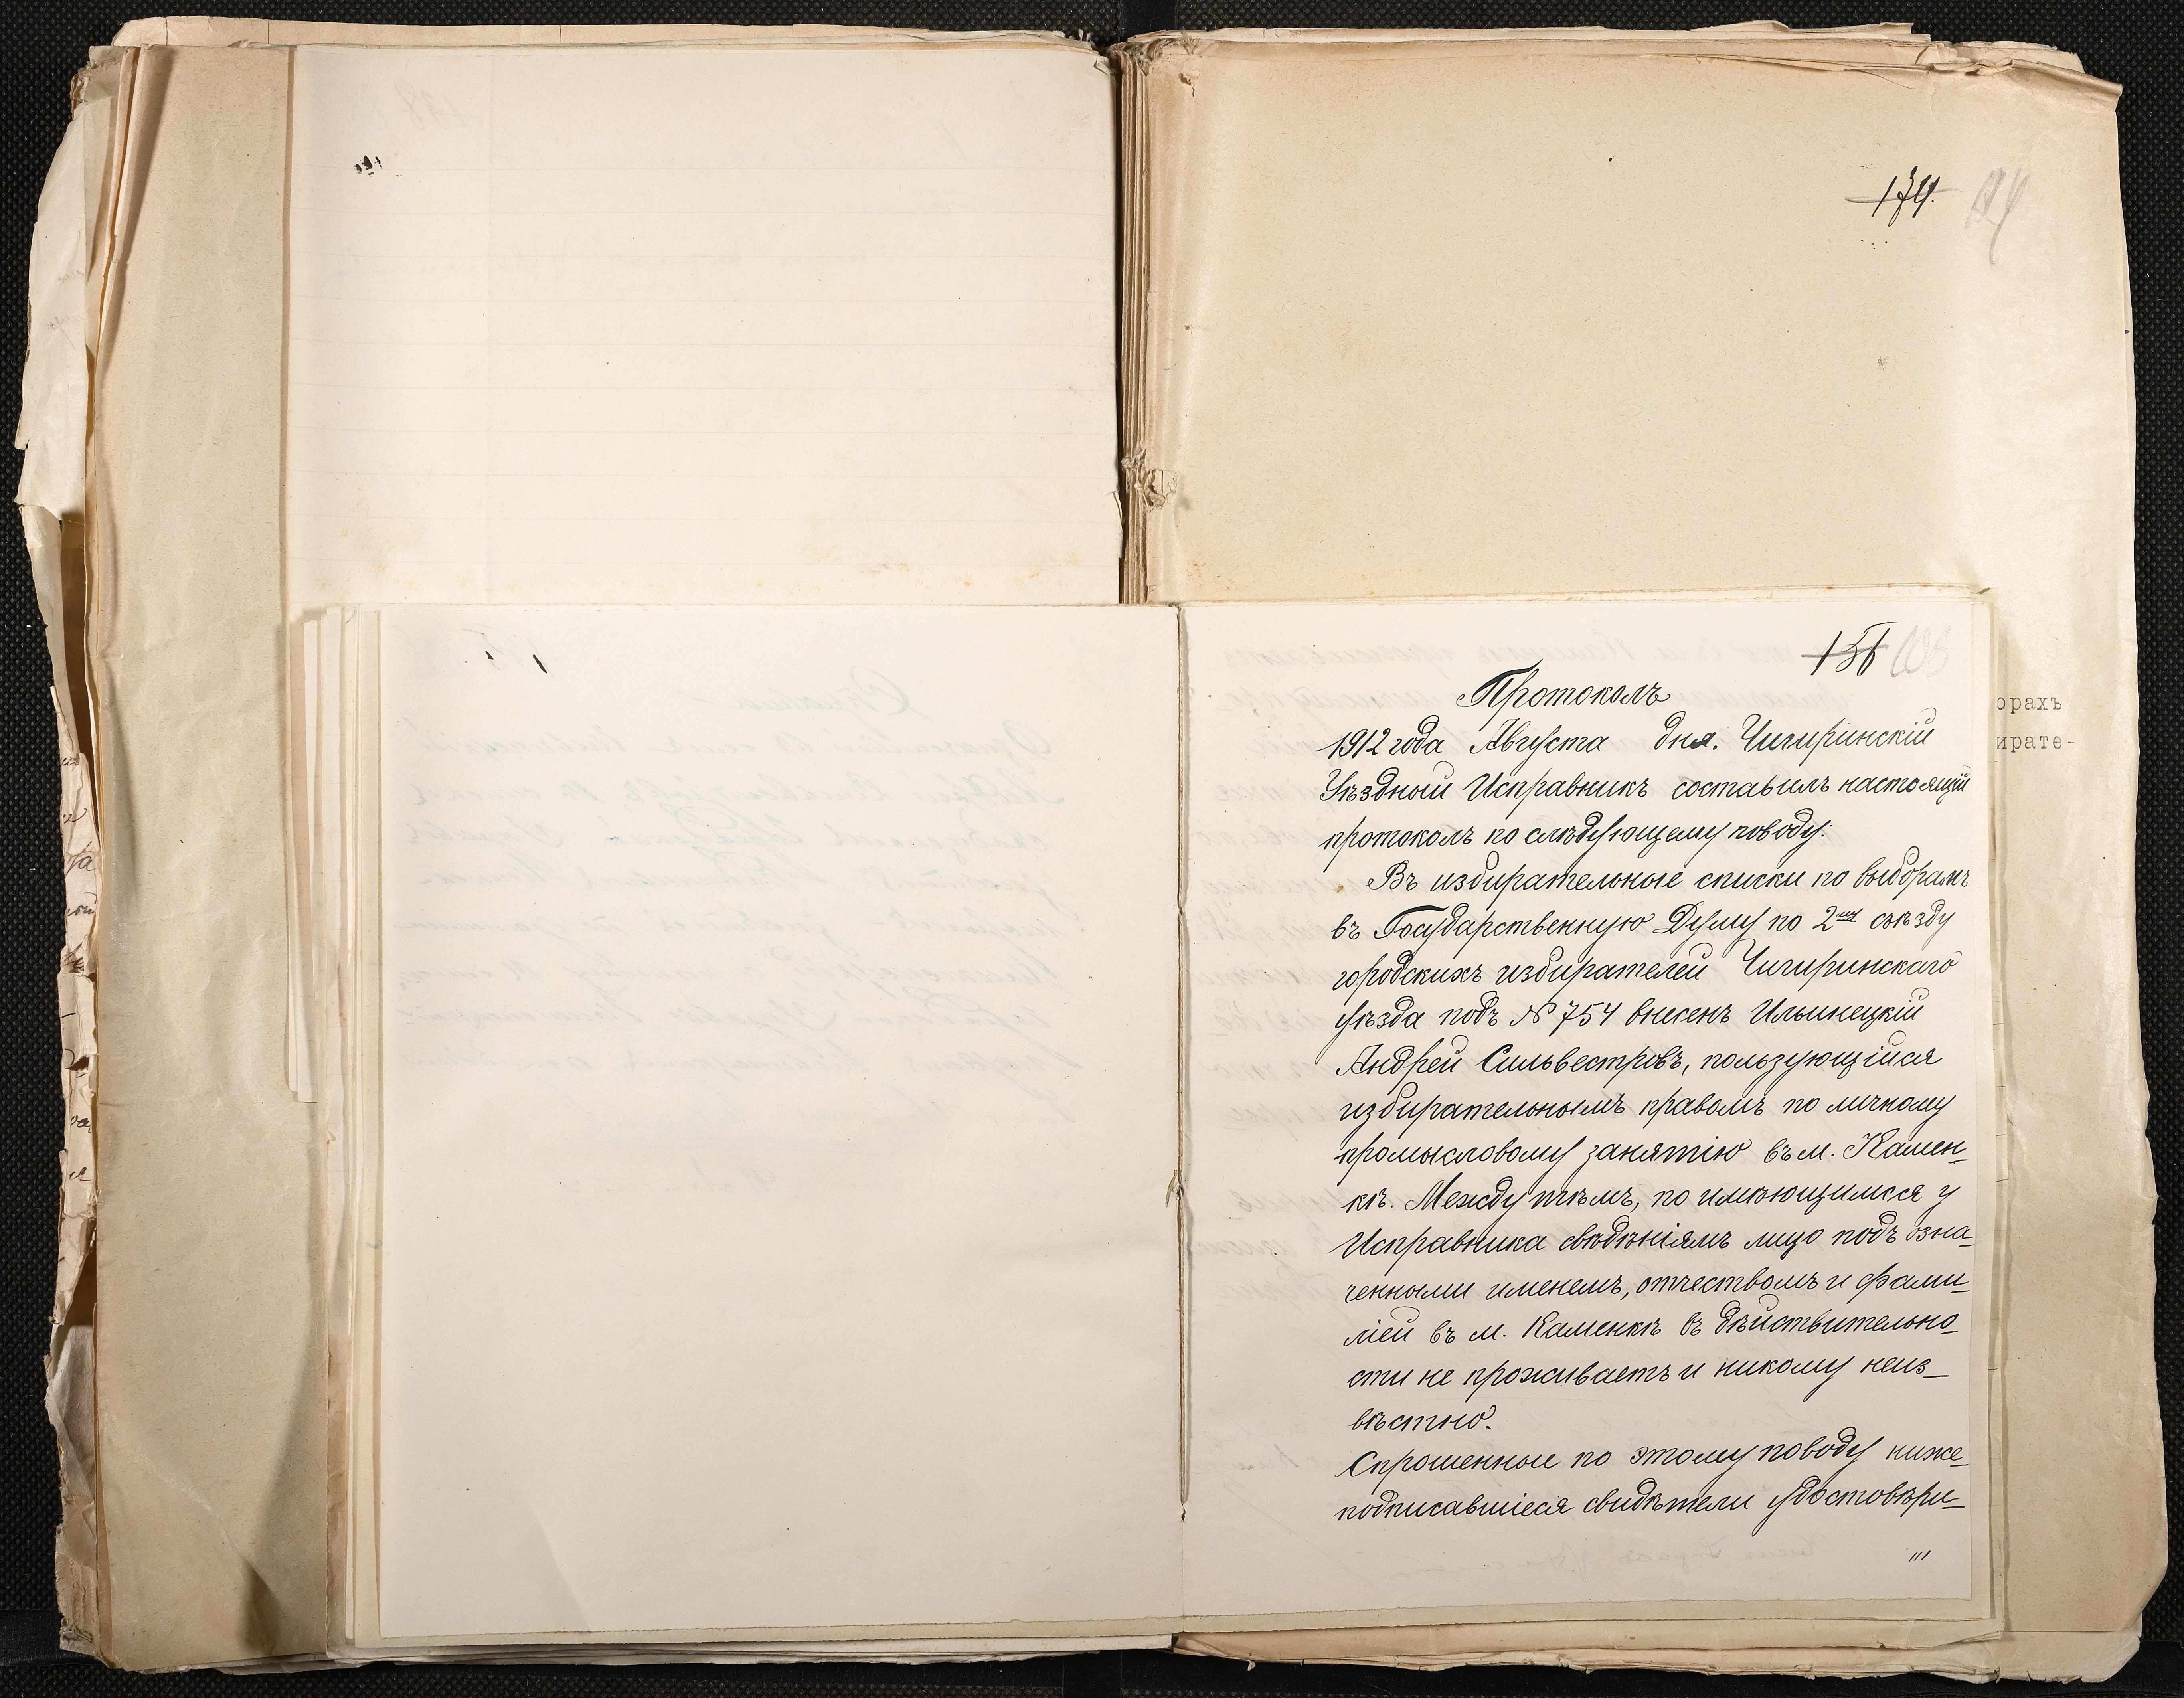 174.
156
Протоколъ
1912 года Августа дня. Чигиринскій
Уѣздный Исправникъ составилъ настоящій
протоколъ по слѣдующему поводу:
Въ избирательные списки по выборамъ
въ Государственную Думу по 2му съѣзду
городскихъ избирателей Чигиринскаго
уѣзда подъ № 754 внесенъ Ильинецкій
Андрей Сильвестровъ, пользующійся
избирательнымъ правомъ по личному
промысловому занятію въ м. Камен-
кѣ. Между тѣмъ, по имѣющимся у
Исправника свѣдѣніямъ лицо подъ озна-
ченными именемъ, отчествомъ и фами-
ліей въ м. Каменкѣ въ дѣйствительно-
сти не проживаетъ и никому неиз-
вѣстно.
Спрошенные по этому поводу ниже-
подписавшіеся свидѣтели удостовѣри-
орахъ
ирате-